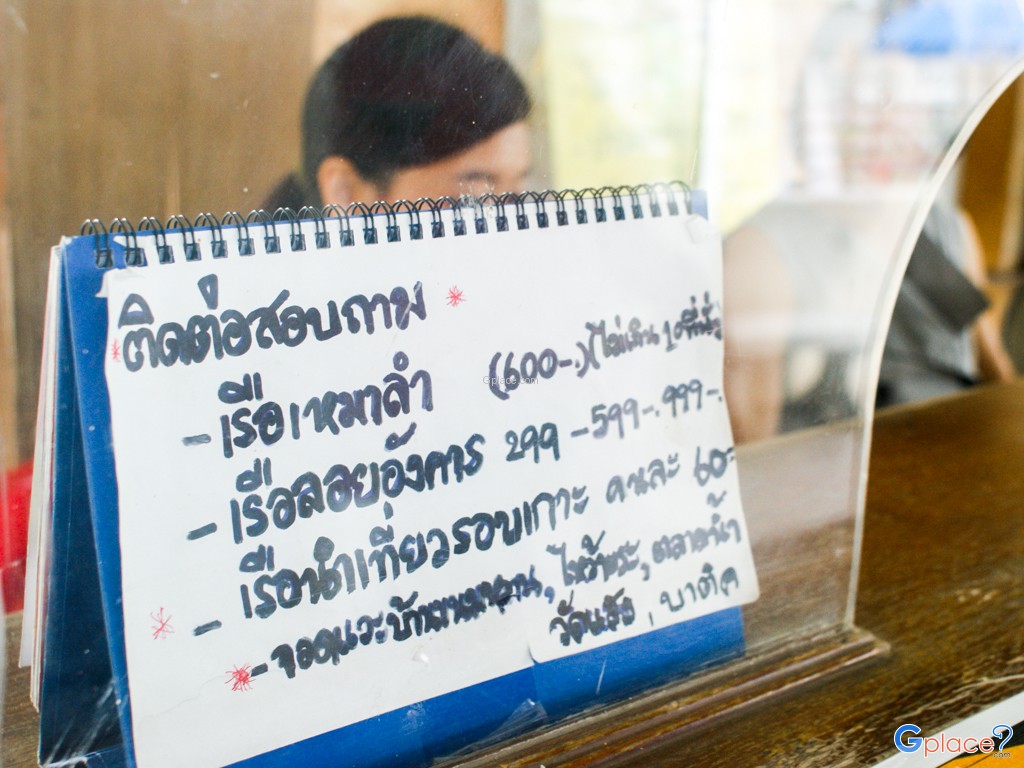 ติดต่อสอบถาม
- เรือเหมาลำ (600-.) (ไม่เกิน 10 ที่นั่ง)
- เรือลอยอังคาร 299 - 599-. 999-.
- เรือนำเที่ยวรอบเกาะ คนละ 60=
- จอดแวะบ้านขนมหวาน, ไหว้พระ, ตลาดน้ำ
วัด , บาติค
Gplace.com
Gplace
.com